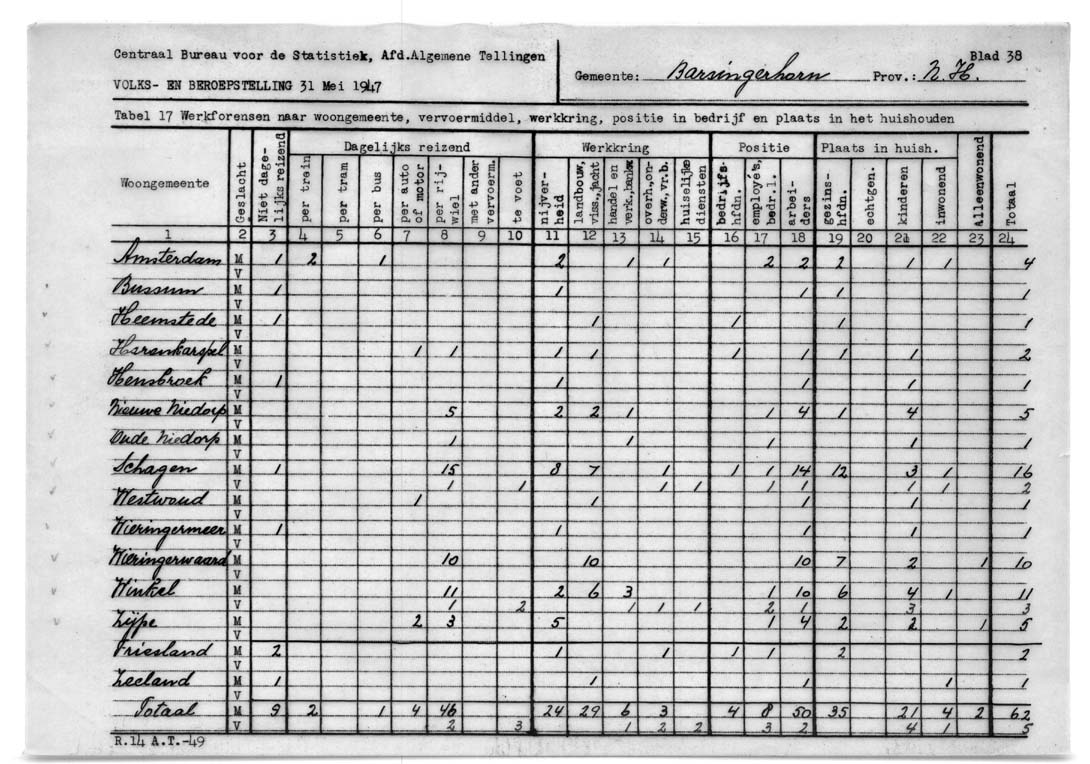 Centraal Bureau voor de Statistiek, Afd.Algemene Tellingen
VOLKS- EN BEROEPSTELLING 31 Mei 1947
Gemeente: Barsingerhorn Prov.: N.H.
Blad 38
Tabel 17 Werkforensen naar woongemeente, vervoermiddel, werkkring, positie in bedrijf en plaats in het huishouden
Woongemeente Geslacht Niet dage-lijks reizend Dagelijks reizend Werkkring Positie Plaats in huish. Alleenwonend Totaal
per trein per tram per bus per auto of motor per rij-wiel met ander vervoerm. te voet nijver-heid landbouw, viss.,jacht handel en verk.,bankw. overh.,on-derw.,vr.b. huiselijke diensten bedrijfs-hfdn. employé's, bedr.l. arbei-ders gezins-hfdn. echtgen. kinderen inwonend
1 2 3 4 5 6 7 8 9 10 11 12 13 14 15 16 17 18 19 20 21 22 23 24
Amsterdam M 1 2 1 2 1 1 2 2 2 1 1 4
V
Bussum M 1 1 1 1 1
V
Heemstede M 1 1 1 1 1
V
Harenkarspel M 1 1 1 1 1 1 1 1 2
V
Hensbroek M 1 1 1 1 1
V
Nieuwe Niedorp M 5 2 2 1 1 4 1 4 5
V
Oude Niedorp M 1 1 1 1 1
V
Schagen M 1 15 8 7 1 1 1 14 12 3 1 16
V 1 1 1 1 1 1 1 1 2
Westwoud M 1 1 1 1 1
V
Wieringermeer M 1 1 1 1 1
V
Wieringerwaard M 10 10 10 7 2 1 10
V
Winkel M 11 2 6 3 1 10 6 4 1 11
V 1 2 1 1 1 2 1 3 3
Zijpe M 2 3 5 1 4 2 2 1 5
V
Friesland M 2 1 1 1 1 2 2
V
Zeeland M 1 1 1 1 1
V
Totaal M 9 2 1 4 46 24 29 6 3 4 8 50 35 21 4 2 62
V 2 3 1 2 2 3 2 4 1 5
R.14 A.T.-49